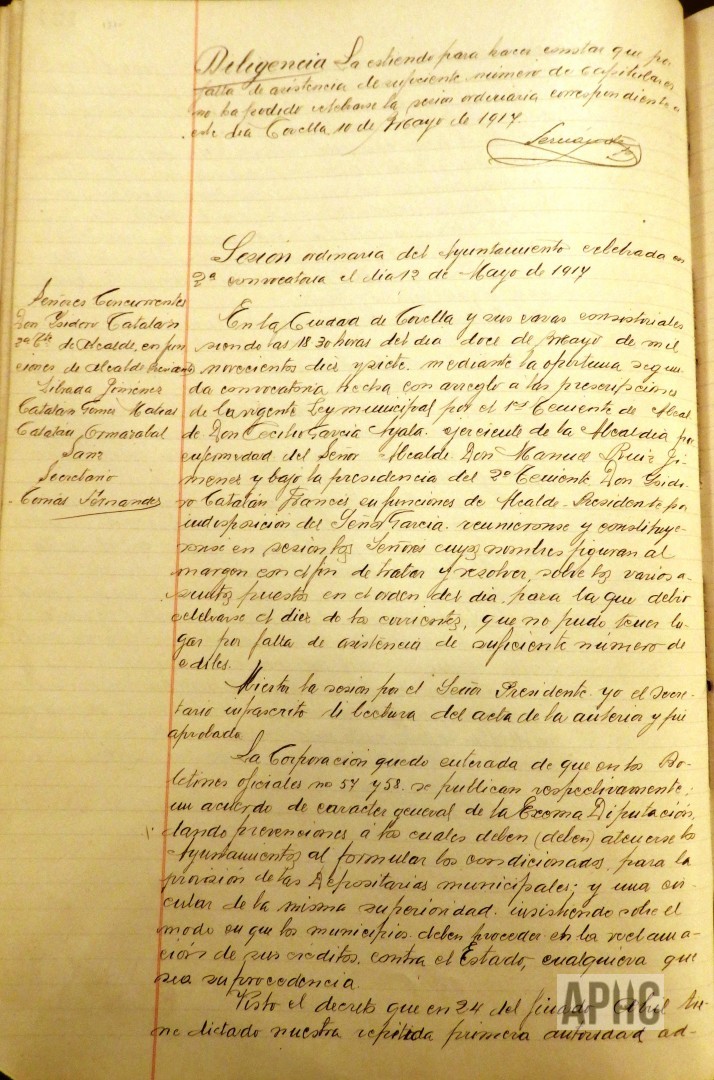 Diligencia La estiendo para hacer constar que por
falta de asistencia de suficiente número de Capitulares
no ha podido celebrarse la sesion ordinaria correspondiente a
este dia Corella 10 de Mayo de 1917.
Sesión ordinaria del Ayuntamiento celebrada en
2ª convocatoria el dia 12 de Mayo de 1917
Señores Concurrentes
Don Ysidoro Catalán
2º Tte de Alcalde, en fun
ciones de Alcalde Presidente
Jimenez
Catalán Gomez Matias
Catalán Ormazabal
Sanz
Secretario
Tomás Fernandez
En la Ciudad de Corella y sus casas consistoriales
siendo las 18'30 horas del dia doce de Mayo de mil
novecientos diez y siete. mediante la oportuna segun
da convocatoria hecha con arreglo a las prescripciones
de la vigente Ley municipal por el 1er Teniente de Alcal
de Don Cecilio Garcia Ayala. ejerciente de la Alcaldia por
enfermedad del Señor Alcalde Don Manuel Ruiz Ji
menez y bajo la presidencia del 2º Teniente Don Ysido
ro Catalán Frances en funciones de Alcalde-Presidente por
indisposicion del Señor Garcia. reunieronse y constituye
ronse en sesion los Señores cuyos nombres figuran al
margen con el fin de tratar y resolver sobre los varios a-
suntos puestos en el orden del dia para la que debio
celebrarse el diez de los corrientes, que no pudo tener lu-
gar por falta de asistencia de suficiente número de
ediles.
Abierta la sesión por el Señor Presidente. yo el Secre-
tario infrascrito di lectura del acta de la anterior y fué
aprobada
La Corporación quedo enterada de que en los Bo-
letines oficiales nos 57 y 58. se publican respectivamente;
un acuerdo de caracter general de la Excma Diputación,
dando prevenciones á las cuales deben (deben) atenerse los
Ayuntamientos al formular los condicionados, para la
provisión de las Depositarias municipales; y una cir-
cular de la misma superioridad. insistiendo sobre el
modo en que los municipios deben proceder en la reclama-
ción de sus creditos contra el Estado, cualquiera que
sea su procedencia
Visto el decreto que en 24 del finado Abril tie-
ne dictado nuestra repetida primera autoridad ad-
APHC